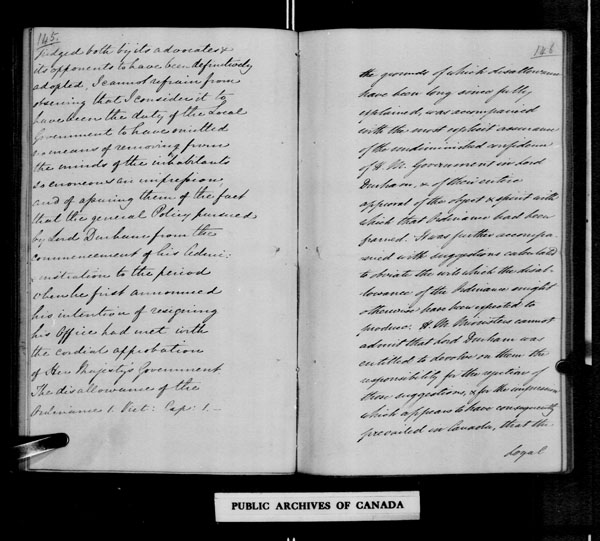 145.
judged both by its advocates &
its opponents to have been definitively
adopted, I cannot refrain from
observing that I consider it to
have been the duty of the Local
Government to have omitted
no means of removing from
the minds of the inhabitants
so erroneous an impression,
and of assuring them of the fact
that the general Policy pursued
by Lord Durham from the
commencement of his Admi:
:nistration to the period
when he first announced
his intention of resigning
his Office had met with
the cordial approbation
of Her Majesty's Government
The disallowance of the
Ordinance 1. Vict: Cap: 1.—
146
the grounds of which disallowance
have been long since fully
explained, was accompanied
with the most explicit assurance
of the undiminished confidence
of H. M. Government in Lord
Durham, & of their entire
approval of the object & spirit with
which that Ordinance had been
framed. It was further accompa-
nied with suggestions calculated
to obviate the evils which the disal-
lowance of the Ordinance might
otherwise have been expected to
produce. H. M. Ministers cannot
admit that Lord Durham was
entitled to devolve on them the
responsibility for the rejection of
those suggestions, & for the impression
which appears to have consequently
prevailed in Canada, that the
Legal
PUBLIC ARCHIVES OF CANADA